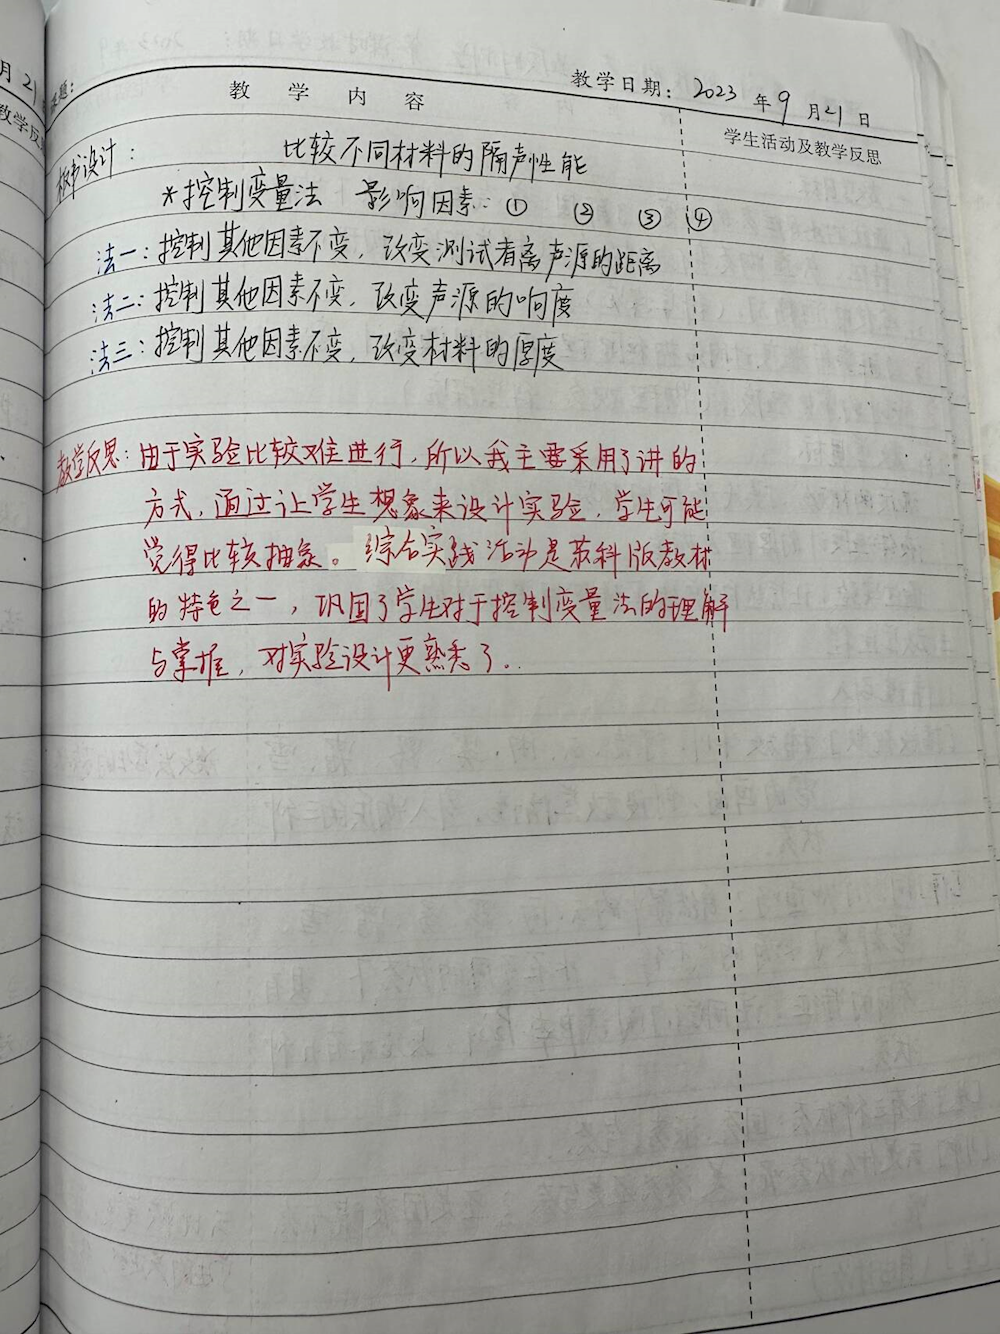 月21
教学反
题:
教学日期: 2023 年 9 月 21 日
教 学 内 容
学生活动及教学反思
板书设计:
比较不同材料的隔声性能
*控制变量法 影响因素: ① ② ③ ④
法一: 控制其他因素不变, 改变测试者离声源的距离
法二: 控制其他因素不变, 改变声源的响度
法三: 控制其他因素不变, 改变材料的厚度
教学反思: 由于实验比较难进行, 所以我主要采用了讲的
方式, 通过让学生想象来设计实验, 学生可能
觉得比较抽象。综合实践活动是苏科版教材
的特色之一, 巩固了学生对于控制变量法的理解
与掌握, 对实验设计更熟悉了。